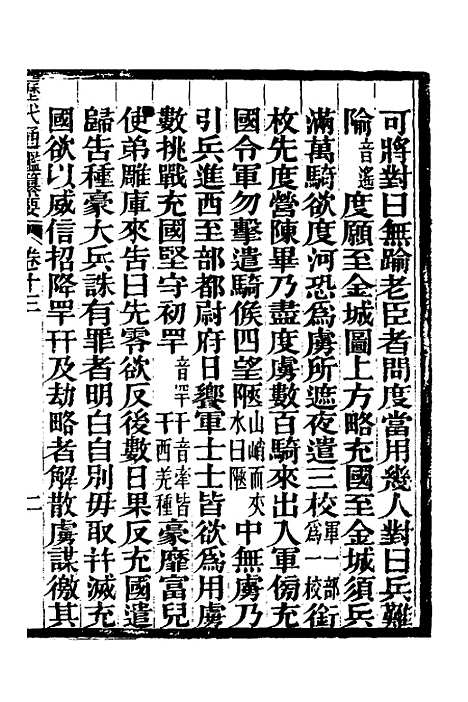 可將對曰無踰老臣者問度當用幾人對曰兵難
隃音遙度願至金城圖上方略充國至金城須兵
滿萬騎欲度河恐爲虜所遮夜遣三校軍一部爲一校銜
枚先度營陳畢乃盡度虜數百騎來出入軍傍充
國令軍勿擊遣騎候四望陿山峭而夾水曰陿中無虜乃
引兵進西至部都尉府日饗軍士士皆欲爲用虜
數挑戰充國堅守初罕音罕幵音牽皆西羌種豪靡當兒
使弟雕庫來告曰先零欲反後數日果反充國遣
歸告種豪大兵誅有罪者明白自別毋取幷滅充
國欲以威信招降罕幵及劫略者解散虜謀徼其
歷代通鑑纂要 卷十三 二